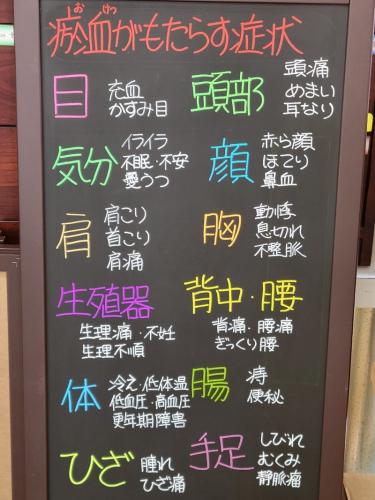 瘀血がもたらす症状
おけつ
目
充血
かすみ目
頭部
頭痛
めまい
耳なり
気分
イライラ
不眠・不安
憂うつ
顔
赤ら顔
ほてり
鼻血
肩
肩こり
首こり
肩痛
胸
動悸
息切れ
不整脈
生殖器
生理痛・不妊
生理不順
背中・腰
背痛・腰痛
ぎっくり腰
体
冷え・低体温
低血圧・高血圧
更年期障害
腸
痔
便秘
ひざ
腫れ
ひざ痛
手足
しびれ
むくみ
静脈瘤